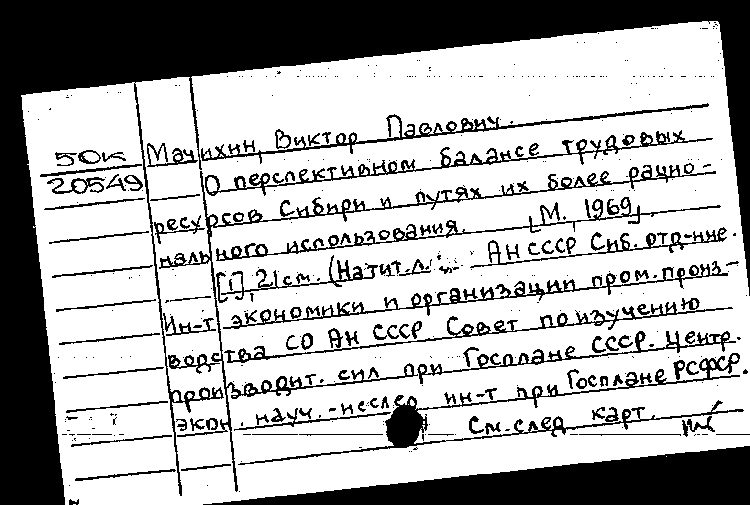 Мачихин, Виктор Павлович.
50к
20549
О перспективном балансе трудовых
ресурсов Сибири и путях их более рацио-
нального использования. [М., 1969].
[1], 21 см. (На тит. л.: АН СССР Сиб. отд-ние.
Ин-т экономики и организации пром. произ-
водства СО АН СССР. Совет по изучению
производит. сил при Госплане СССР. Центр.
экон. науч.-исслед ин-т при Госплане РСФСР.
См. след карт.